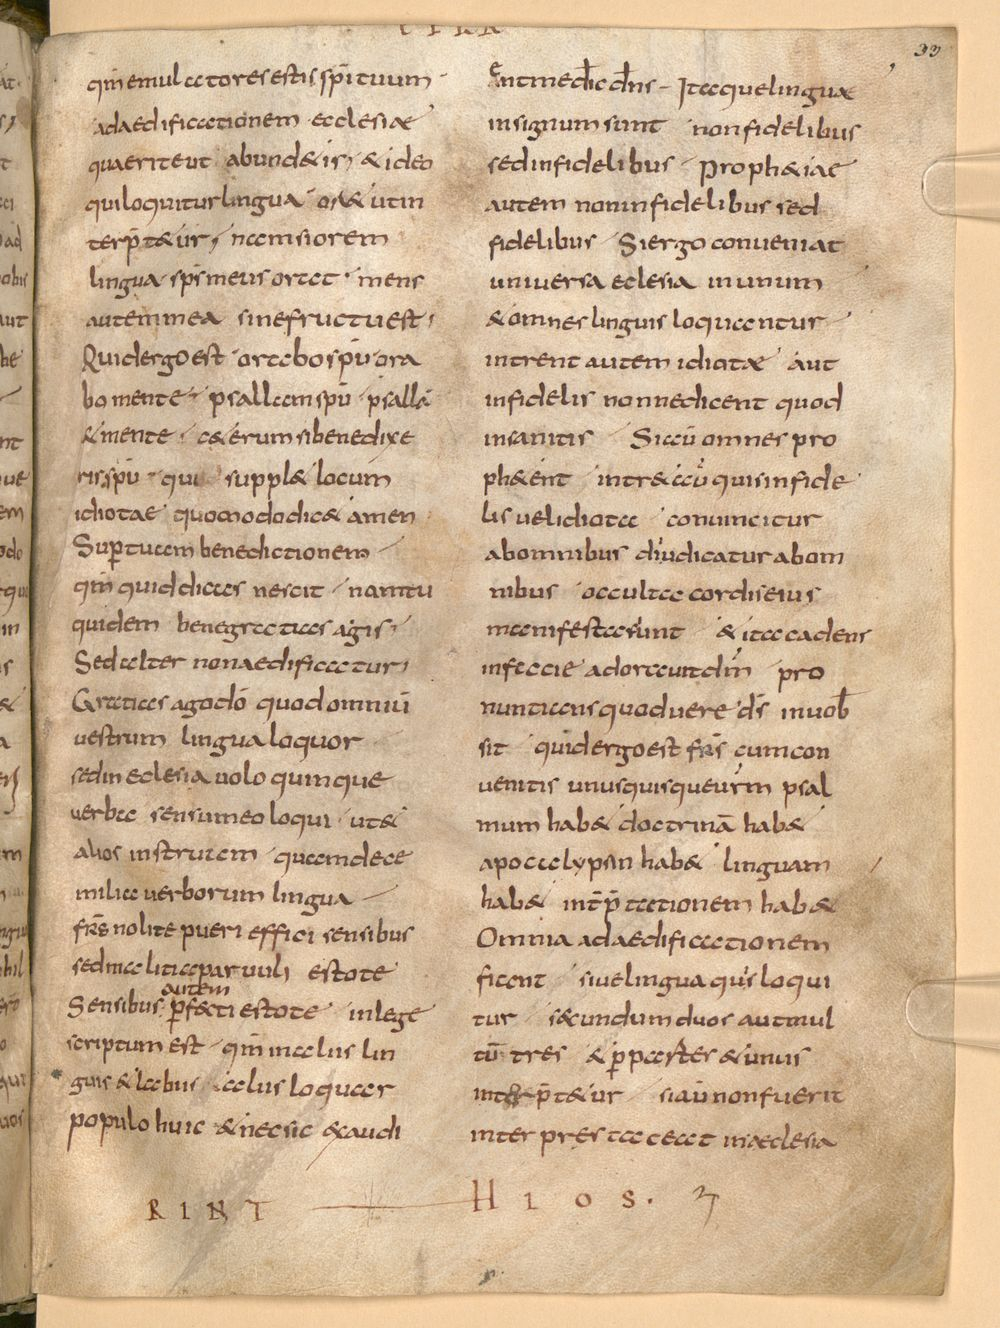 33
qm̄ emulatores estis sp̄ituum
ad aedificationem ecclesiae
quaerite ut abund&is & ideo
qui loquitur lingua or& ut in
terp̄t&ur, nam si orem
lingua sp̄s meus orat mens
autem mea sine fructu est
Quid ergo est orabo sp̄u ora
bo mente psallam sp̄u psallā
& mente c&erum si benedixe
ris sp̄u qui suppl& locum
idiotae quomodo dic& amen
Sup̄ tuam benedictionem
qm̄ quid dicas nescit nam tu
quidem bene gratias agis
Sed alter non aedificatur
Gratias ago dō quod omniū
vestrum lingua loquor
sed in eclesia uolo quinque
verba sensu meo loqui ut &
alios instruam quam dece
milia verborum lingua
fr̄s nolite pueri effici sensibus
sed malitia paruuli estote
autem
Sensibus p̄fecti estote in lege
scriptum est qm̄ in alus lin
guis & labus alus loquar
populo huic & nec sic exaudi
ent me dic dn̄s Itaque linguae
in signum sunt non fidelibus
sed infidelibus Proph&iae
autem non infidelibus sed
fidelibus Si ergo conveniat
universa eclesia in unum
& omnes linguis loquantur
intrent autem idiotae aut
infidelis nonne dicent quod
insanitis Si aū omnes pro
ph&ent intr& aū quis infide
lis uel idiota convincitur
ab omnibus diiudicatur ab om
nibus occulta cordis eius
manifesta sunt & ita cadens
in facie adoravit dm̄ pro
nuntians quod uere ds̄ in uob
sit quid ergo est fr̄s cum con
uenitis unusquisque ur̄m psal
mum hab& doctrinā hab&
apocalypsin hab& linguam
hab& int̄p̄tationem hab&
Omnia ad aedificationem
fiant siue lingua quis loqui
tur s&cundum duos aut mul
tū tres & p̄ partes & unus
interp̄t&ur si aū non fuerit
interpres taceat in aeclesia
RINT HIOS.